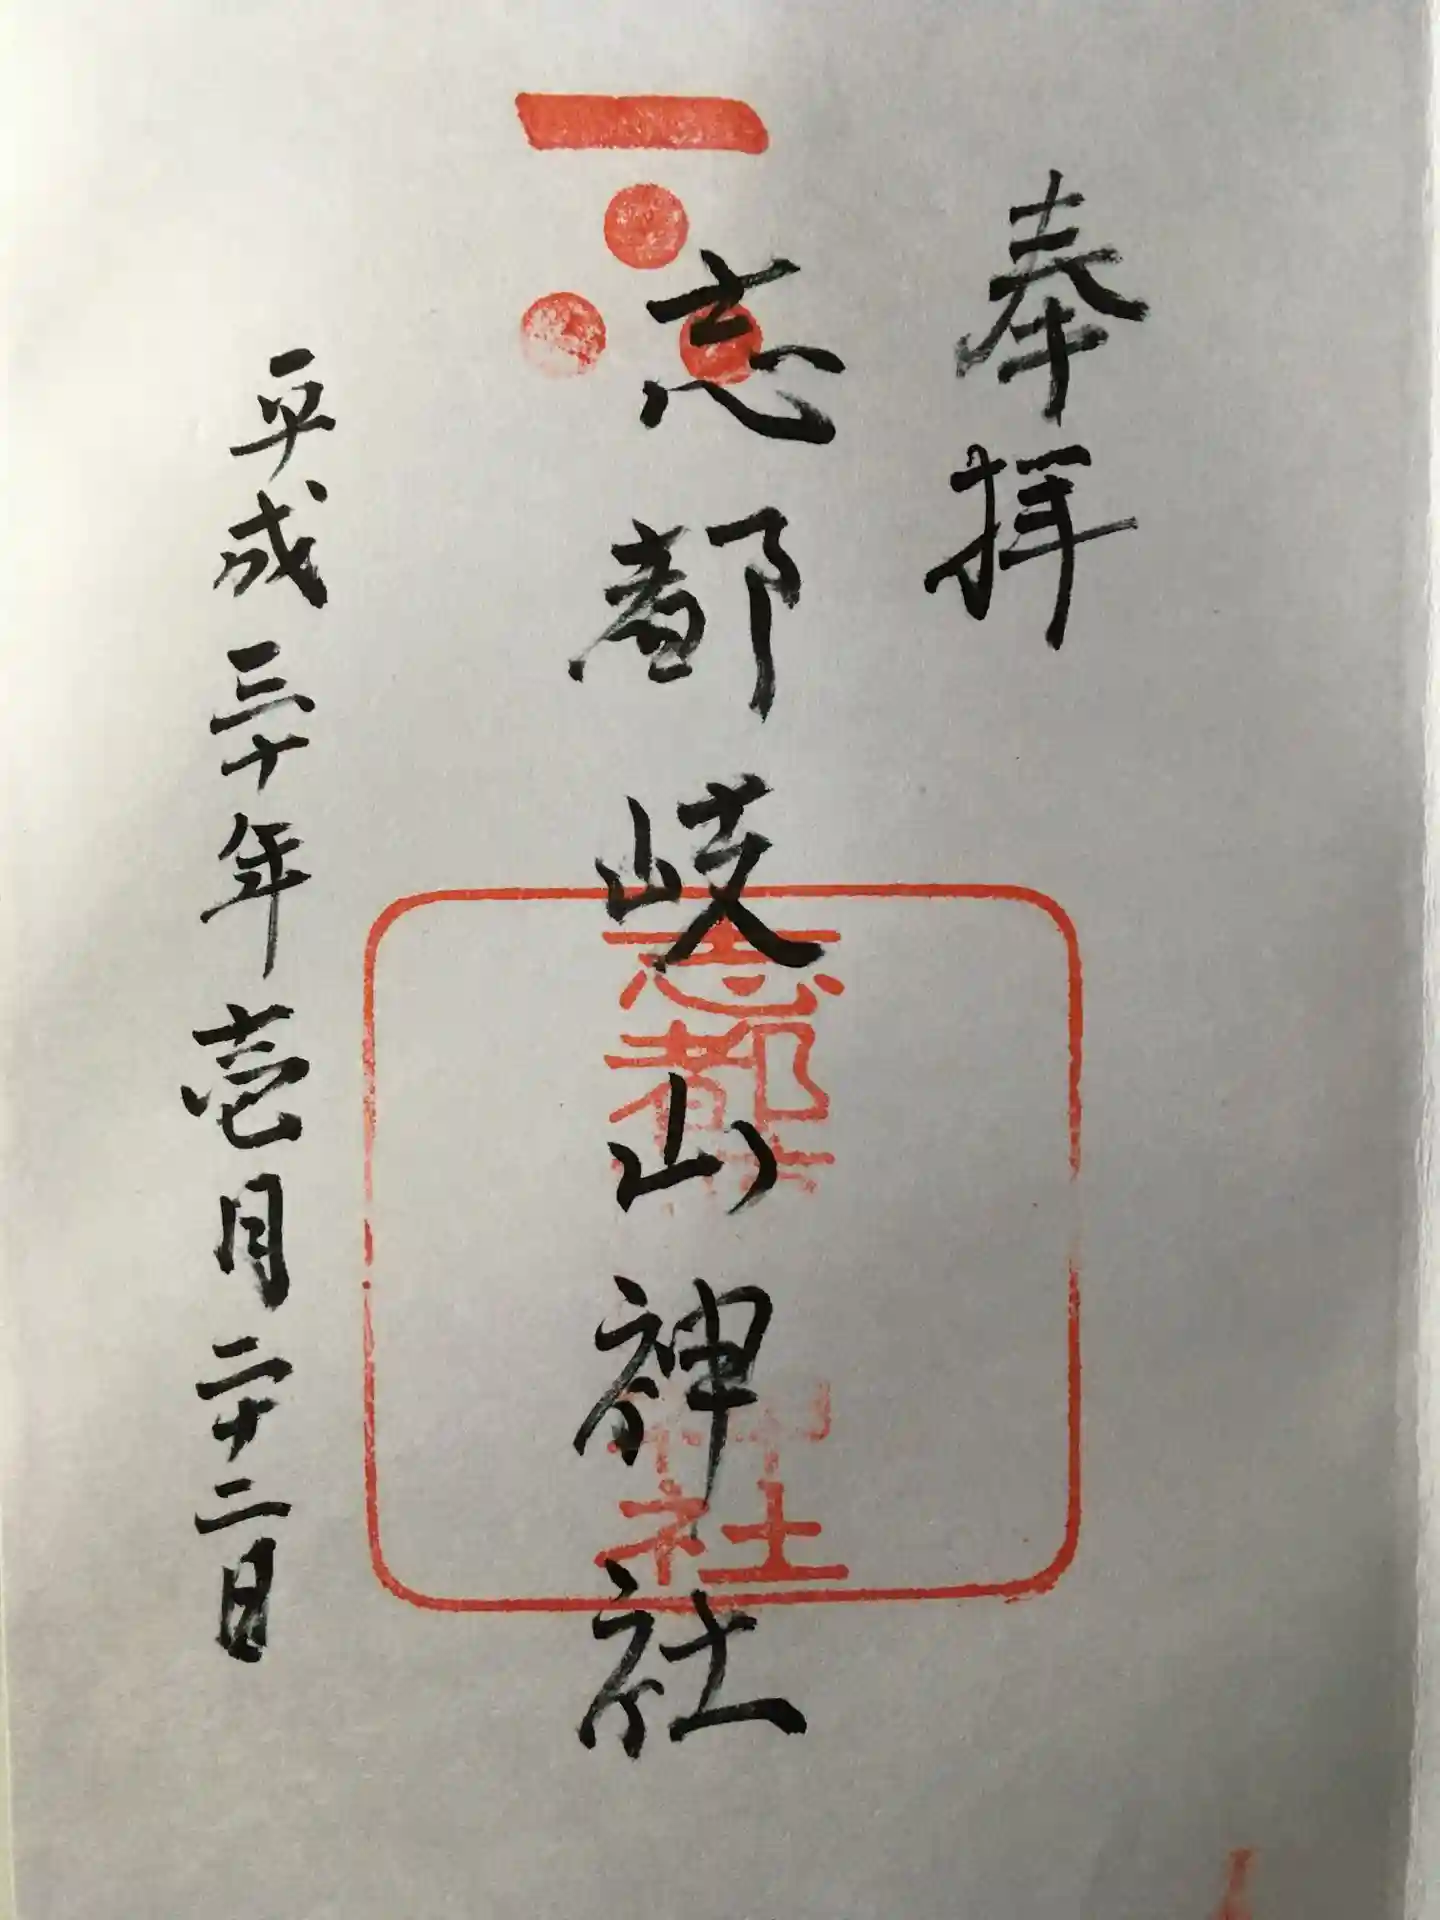 奉拝
志都岐山神社
平成三十年壱月二十二日
志都
神社